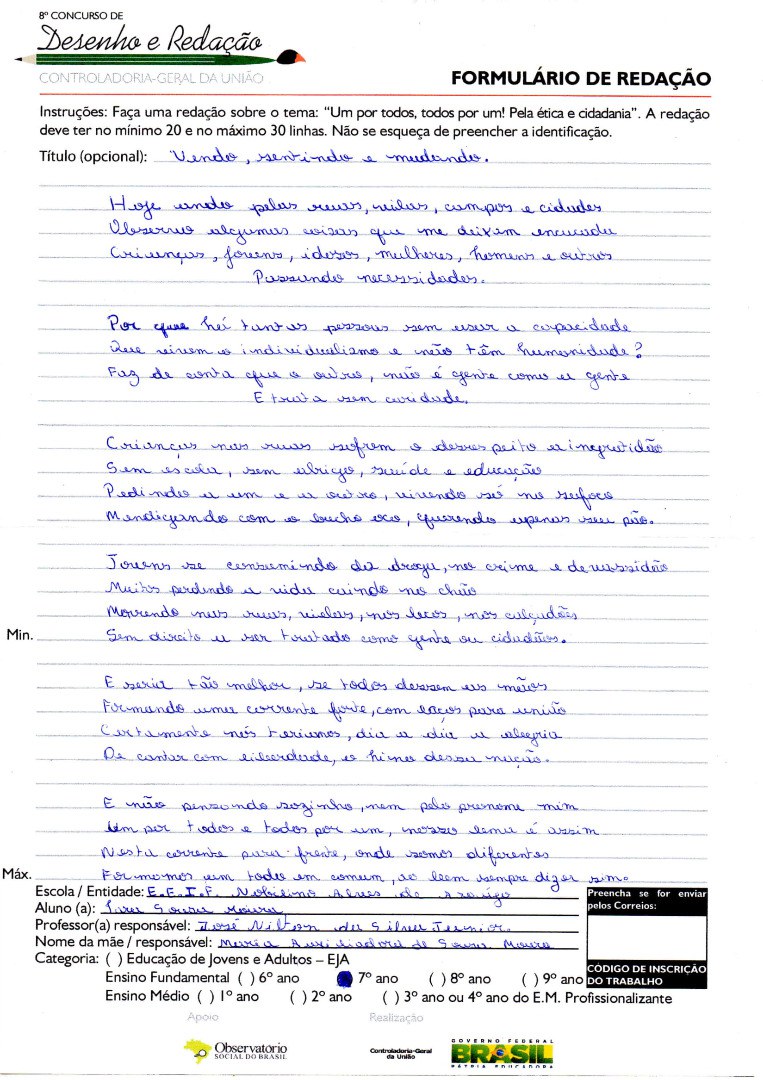 8º CONCURSO DE
Desenho e Redação
CONTROLADORIA-GERAL DA UNIÃO
FORMULÁRIO DE REDAÇÃO
Instruções: Faça uma redação sobre o tema: “Um por todos, todos por um! Pela ética e cidadania”. A redação
deve ter no mínimo 20 e no máximo 30 linhas. Não se esqueça de preencher a identificação.
Título (opcional): Vendo, sentindo e mudando.
Hoje ando pelas ruas, vilas, campos e cidades
Observo algumas coisas que me deixam encucada
Crianças, jovens, idosos, mulheres, homens e outros
Passando necessidades.
Por que há tantas pessoas sem usar a capacidade
Que vivem o individualismo e não têm humanidade?
Faz de conta que o outro, não é gente como a gente
E trata sem caridade.
Crianças nas ruas sofrem o desrespeito a ingratidão
Sem escola, sem abrigo, saúde e educação
Pedindo a um e a outro, vivendo só no sufoco
Mendigando com o bucho oco, querendo apenas seu pão.
Jovens se consumindo da droga, no crime e devassidão
Muitos perdendo a vida caindo no chão
Morrendo nas ruas, vielas, nos becos, nos calçadões
Min.
Sem direito a ser tratado como gente ou cidadãos.
E seria tão melhor, se todos dessem as mãos
Formando uma corrente forte, com laços para união
Certamente nós teriamos, dia a dia a alegria
De cantar com liberdade, o hino dessa nação.
E não pensando sozinho, nem pelo pronome mim
Um por todos e todos por um, nosso lema é assim
Nesta corrente para frente, onde somos diferentes
Máx.
Formemos um todo em comum, ao bem sempre dizer sim.
Escola / Entidade: E.E.I.F. Nobilino Alves de Araújo
Aluno (a): Sousa Moura
Professor(a) responsável: José Nilton da Silva Junior.
Nome da mãe / responsável: Maria Auxiliadora de Sousa Moura
Preencha se for enviar
pelos Correios:
Categoria: ( ) Educação de Jovens e Adultos – EJA
Ensino Fundamental ( ) 6º ano ( ) 7º ano ( ) 8º ano ( ) 9º ano
CÓDIGO DE INSCRIÇÃO
DO TRABALHO
Ensino Médio ( ) 1º ano ( ) 2º ano ( ) 3º ano ou 4º ano do E.M. Profissionalizante
Apoio
Realização
Observatório
SOCIAL DO BRASIL
Controladoria-Geral
da União
GOVERNO FEDERAL
BRASIL
PÁTRIA EDUCADORA